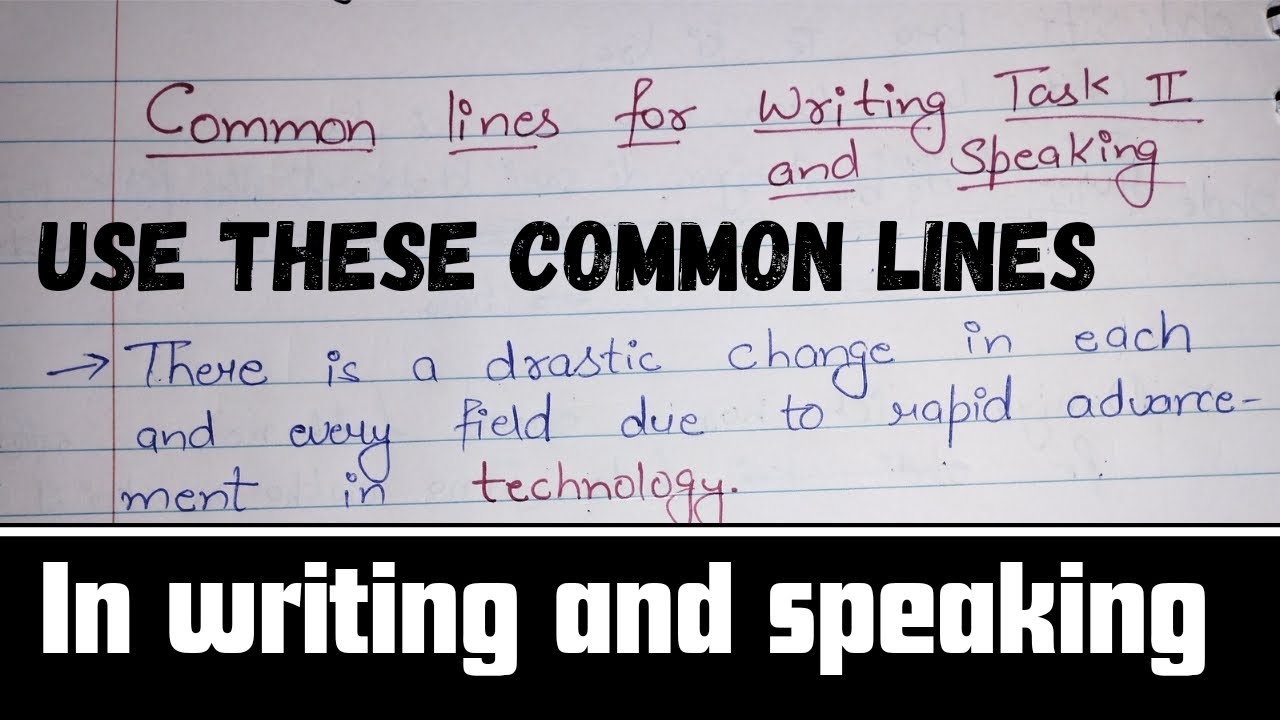 Common lines for Writing Task II
and Speaking
USE THESE COMMON LINES
→ There is a drastic change in each
and every field due to rapid advance-
ment in technology.
In writing and speaking